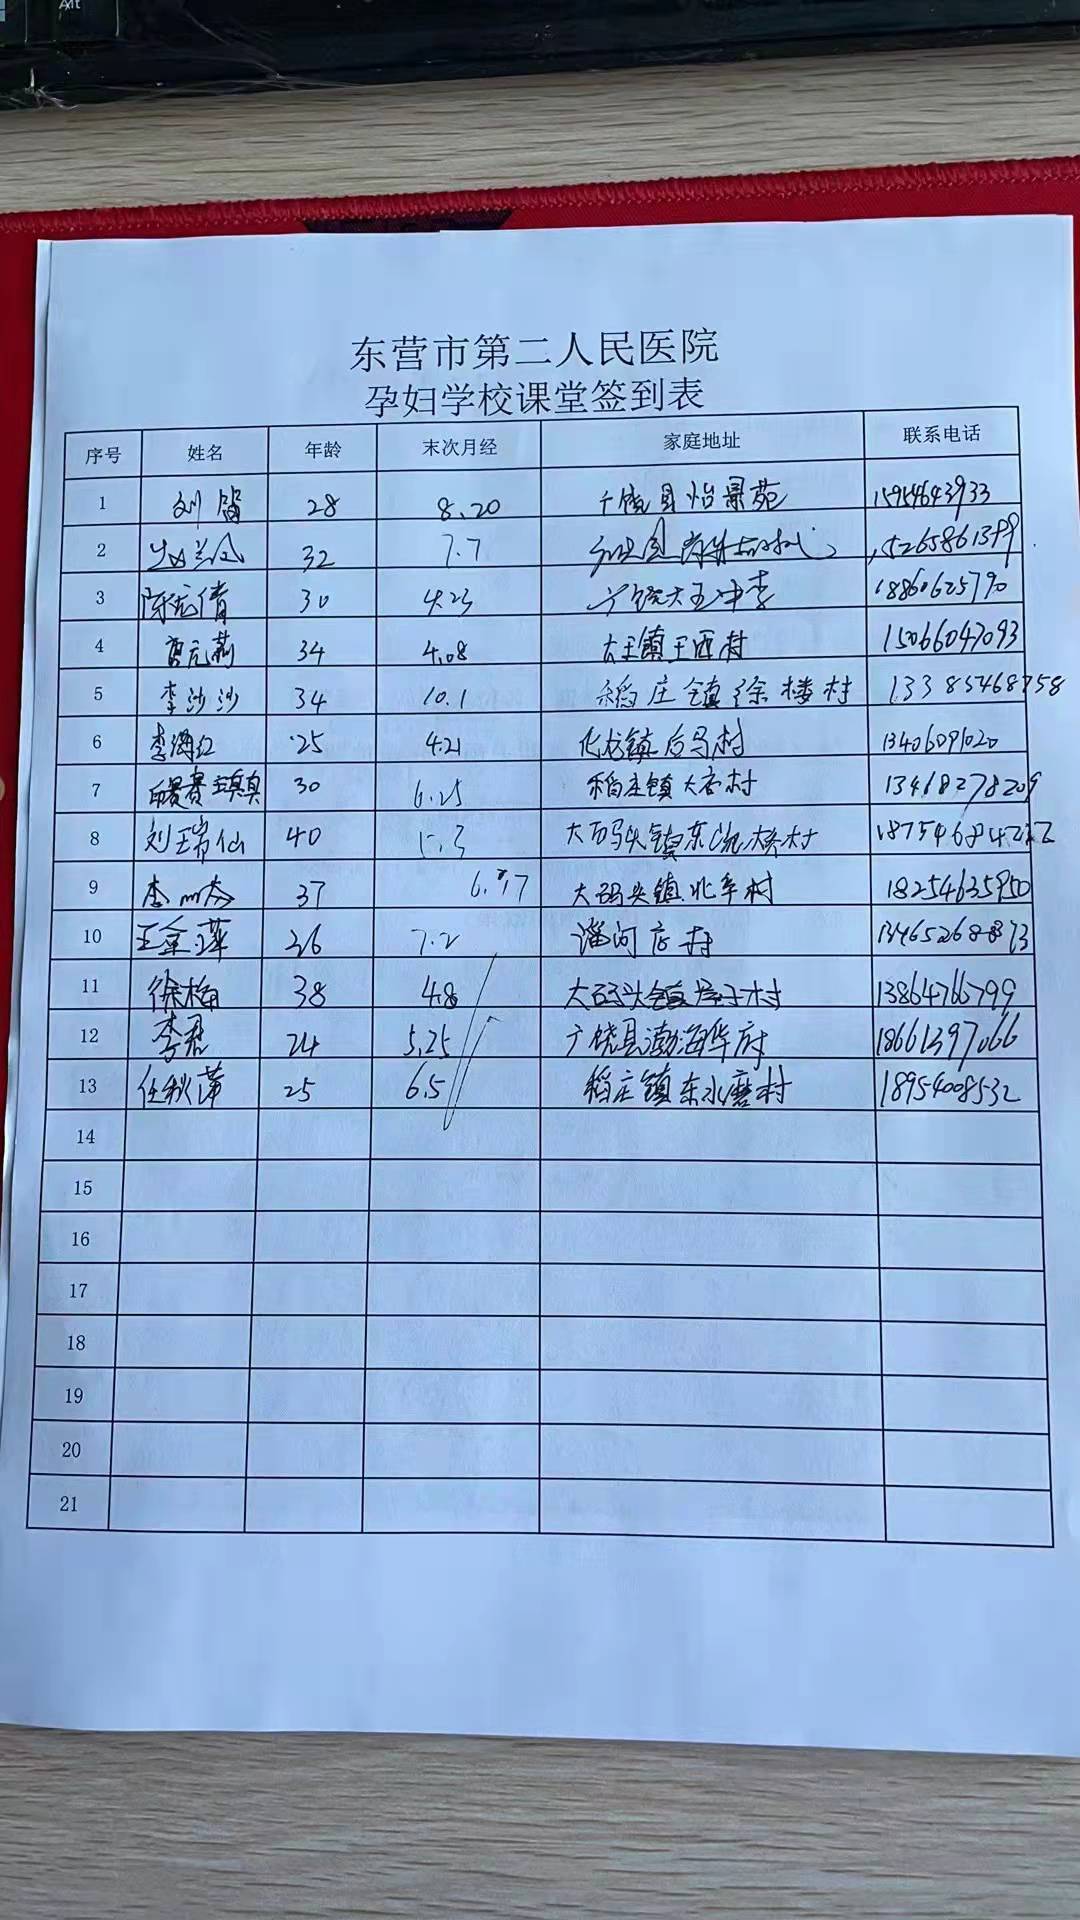 Alt
东营市第二人民医院
孕妇学校课堂签到表
序号 姓名 年龄 末次月经 家庭地址 联系电话
1 刘 28 8.20 广饶县怡景苑 15954643933
2 32 7.7 15265861399
3 陈元倩 30 4.23 广饶大王中李 18860625790
4 曹元莉 34 4.08 大王镇王西村 15066047093
5 李沙沙 34 10.1 稻庄镇徐楼村 13385468758
6 李 红 25 4.21 化龙镇后马村 13406091020
7 30 6.25 稻庄镇大 村 13468278209
8 刘瑞仙 40 5.3 大码头镇东 桥村 187546842
9 李 37 6.17 大码头镇北辛村 18254635950
10 王金萍 26 7.2 淄河店村 13465268873
11 徐梅 38 4.8 大码头镇 村 13864766799
12 李君 24 5.25 广饶县渤海华府 18661397066
13 任秋萍 25 6.5 稻庄镇东水磨村 18954008532
14
15
16
17
18
19
20
21